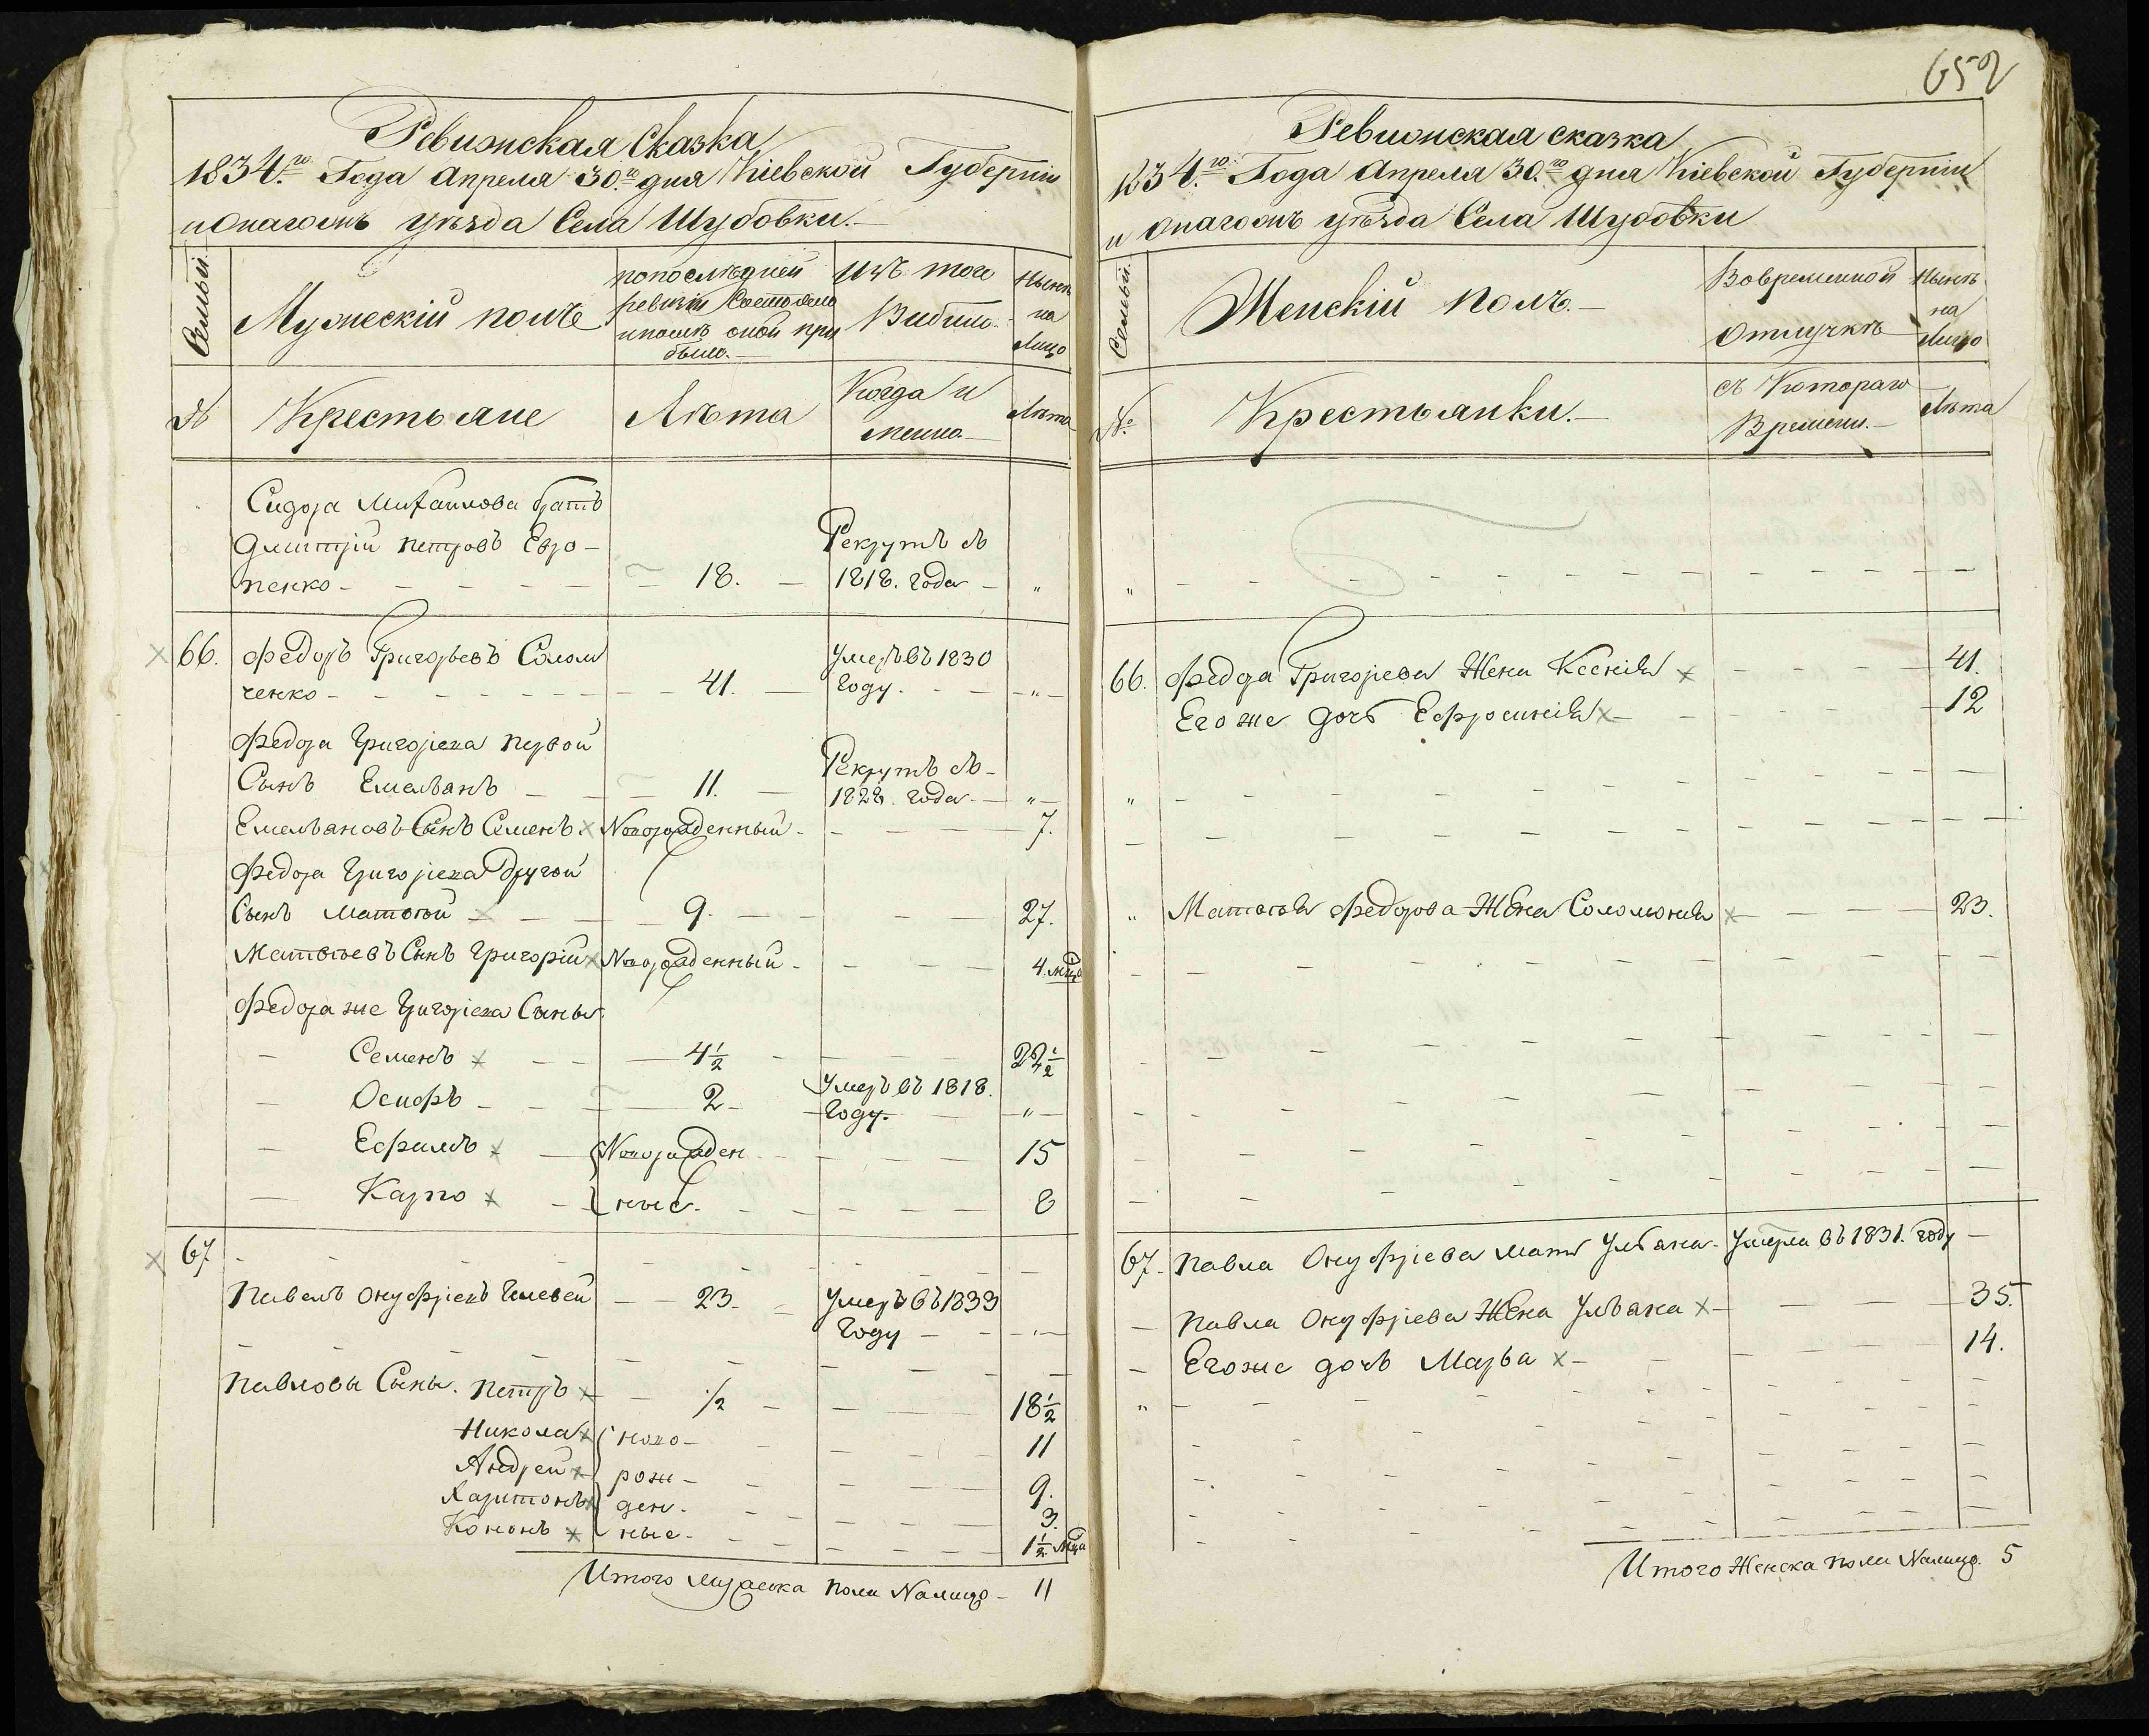 Ревизская Сказка
1834.го Года Апреля 30.го дня Кіевской Губерніи
уѣзда Села Шубовки.
Семьи.
Мужескій полъ
попослѣдней
ревизіи Состояло
ипослѣ оной при
было.
Изъ того
Выбыло
Нынѣ
на
Лицо
№
Крестьяне
Лѣта
Когда и
имянно
Лѣта
Сидора Михайлова братъ
Дмитрій Петровъ
пенко
18.
Рекрутъ съ
1818. года
"
66.
Федоръ Григорьевъ Солом
ченко
41.
Умеръ въ 1830
Году.
"
Федора Григорьева первой
Сынъ Емельянъ
11.
Рекрутъ съ
1828. года
"
Емельяновъ Сынъ Семенъ
Новорожденный
7.
Федора Григорьева Другой
Сынъ Матвѣй
9.
27.
Матвѣевъ Сынъ Григорій
Новорожденный
4. мца
Федора же Григорьева Сыны
Семенъ
4½
22½
Осифъ
2
Умеръ въ 1818.
Году.
"
Ефимъ
Новорожден
15
Карпо
ные
8
67
Павелъ Онуфріевъ
23.
Умеръ въ 1833
Году
"
Павловы Сыны. Петръ
½
18½
Никола
ново-
11
Андрей
рож-
9.
Харитонъ
ден-
3.
Кононъ
ные-
1½ мца
Итого мужеска пола Налицо - 11
652
Ревизская сказка
1834.го Года Апреля 30.го дня Кіевской Губерніи
уѣзда Села Шубовки
Семьи.
Женскій полъ.
Вовременной
Отлучкѣ
Нынѣ
на
Лицо
№.
Крестьянки.
съ Котораго
Времени.
Лѣта
"
66.
Федора Григорьева Жена Ксенія
41.
Его же дочь Ефросинія
12
"
"
Матвѣя Федорова Жена Соломонія
23.
67.
Павла Онуфріева мать Ульяна
Умерла въ 1831. году
Павла Онуфріева Жена Ульяна
35.
Егоже дочь Марья
14.
"
Итого Женска пола Налицо. 5